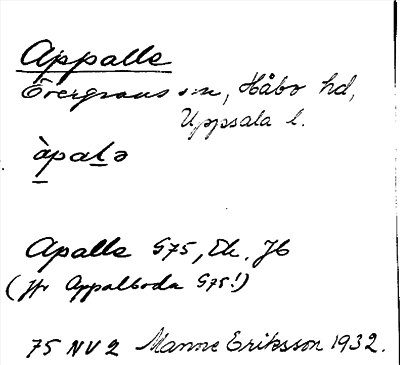 Appalle
Övergrans sn, Håbo hd,
Uppsala l.
àpaḷə
Apalle G75, Ek. JB
(Jfr Appalboda G75!)
75 NV 2 Manne Eriksson 1932.